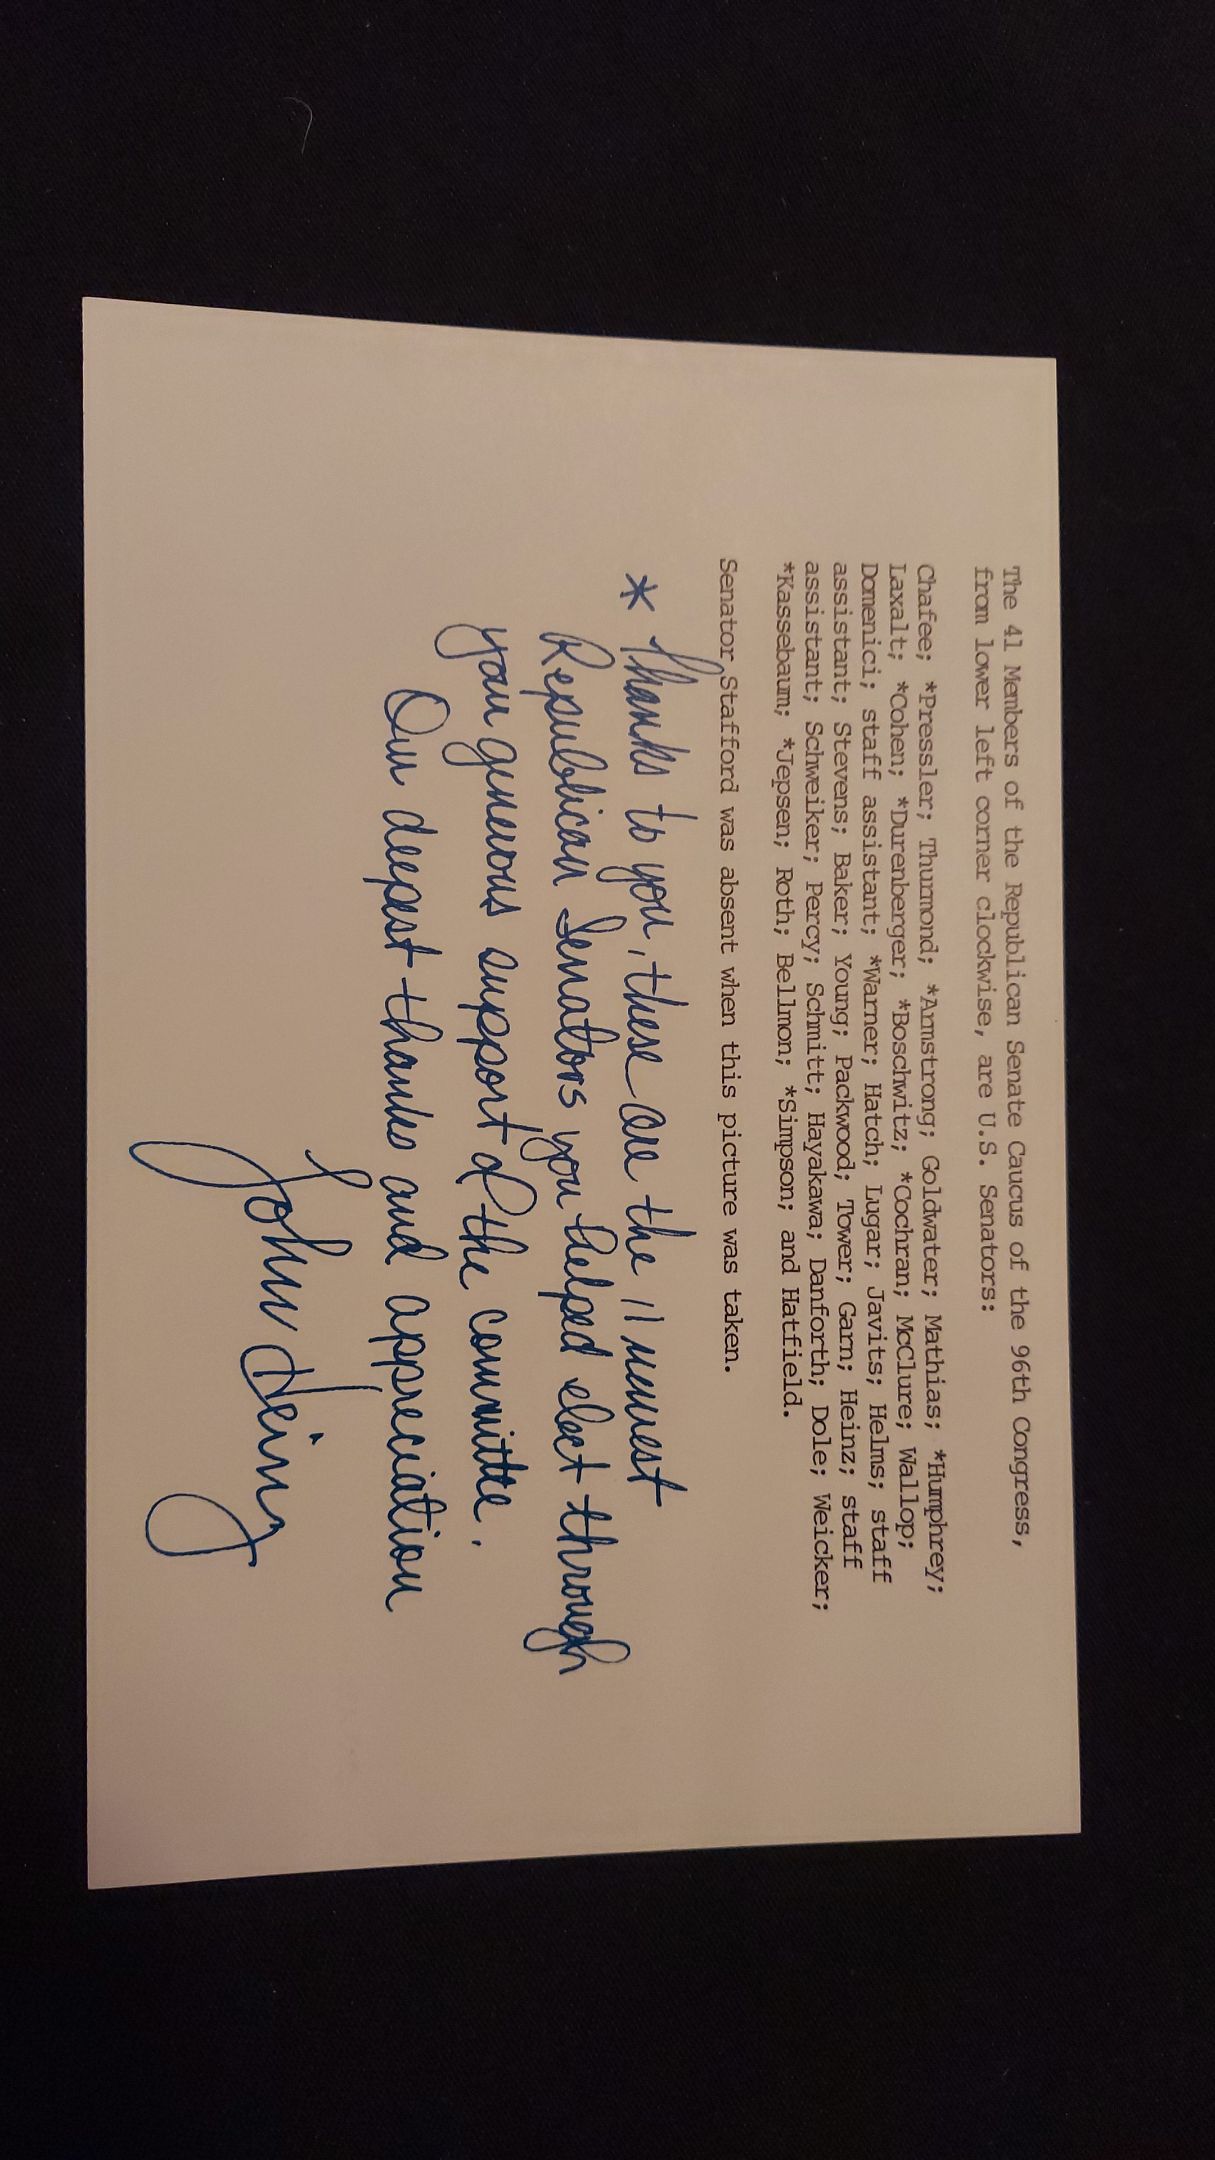 The 41 Members of the Republican Senate Caucus of the 96th Congress,
from lower left corner clockwise, are U.S. Senators:
Chafee; *Pressler; Thurmond; *Armstrong; Goldwater; Mathias; *Humphrey;
Laxalt; *Cohen; *Durenberger; *Boschwitz; *Cochran; McClure; Wallop;
Domenici; staff assistant; *Warner; Hatch; Lugar; Javits; Helms; staff
assistant; Stevens; Baker; Young; Packwood; Tower; Garn; Heinz; staff
assistant; Schweiker; Percy; Schmitt; Hayakawa; Danforth; Dole; Weicker;
*Kassebaum; *Jepsen; Roth; Bellmon; *Simpson; and Hatfield.
Senator Stafford was absent when this picture was taken.
* Thanks to you, these are the 11 newest
Republican Senators you helped elect through
your generous support of the committee.
Our deepest thanks and appreciation
John Heinz